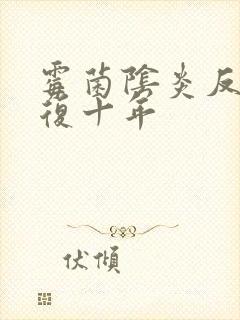 霉菌陰炎反
復十年
伏傾